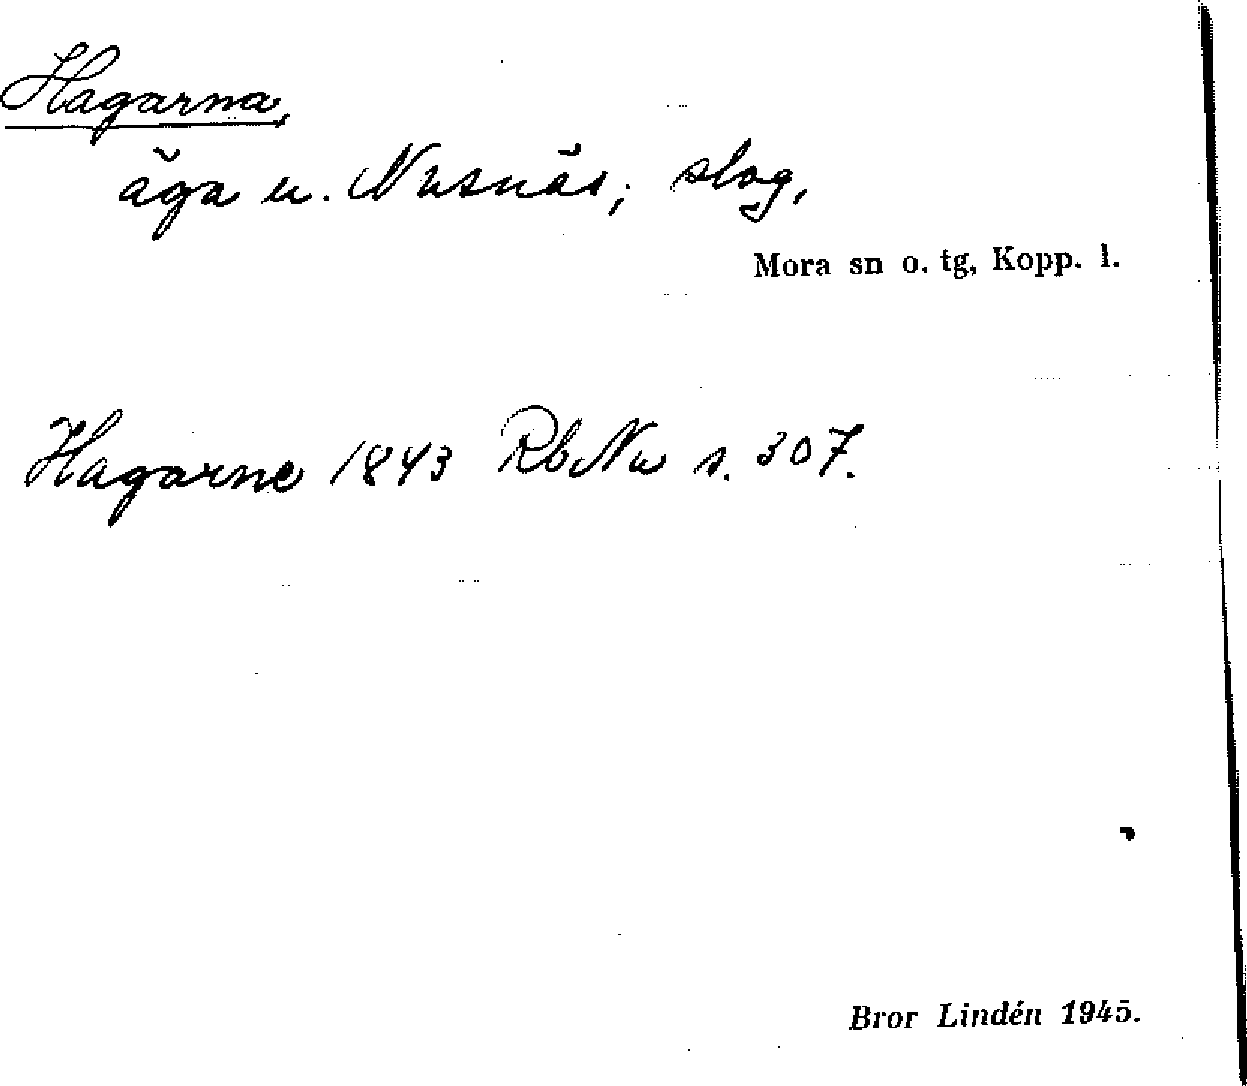 Hagarna,
äga u. Nusnäs; slog,
Mora sn o. tg, Kopp. l.
Hagarne 1843 RbNu s. 307.
Bror Lindén 1945.